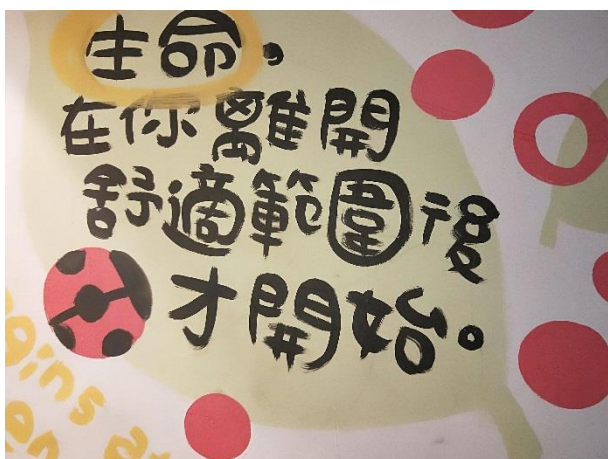 生命，
在你離開
舒適範圍後
才開始。
gins at
en